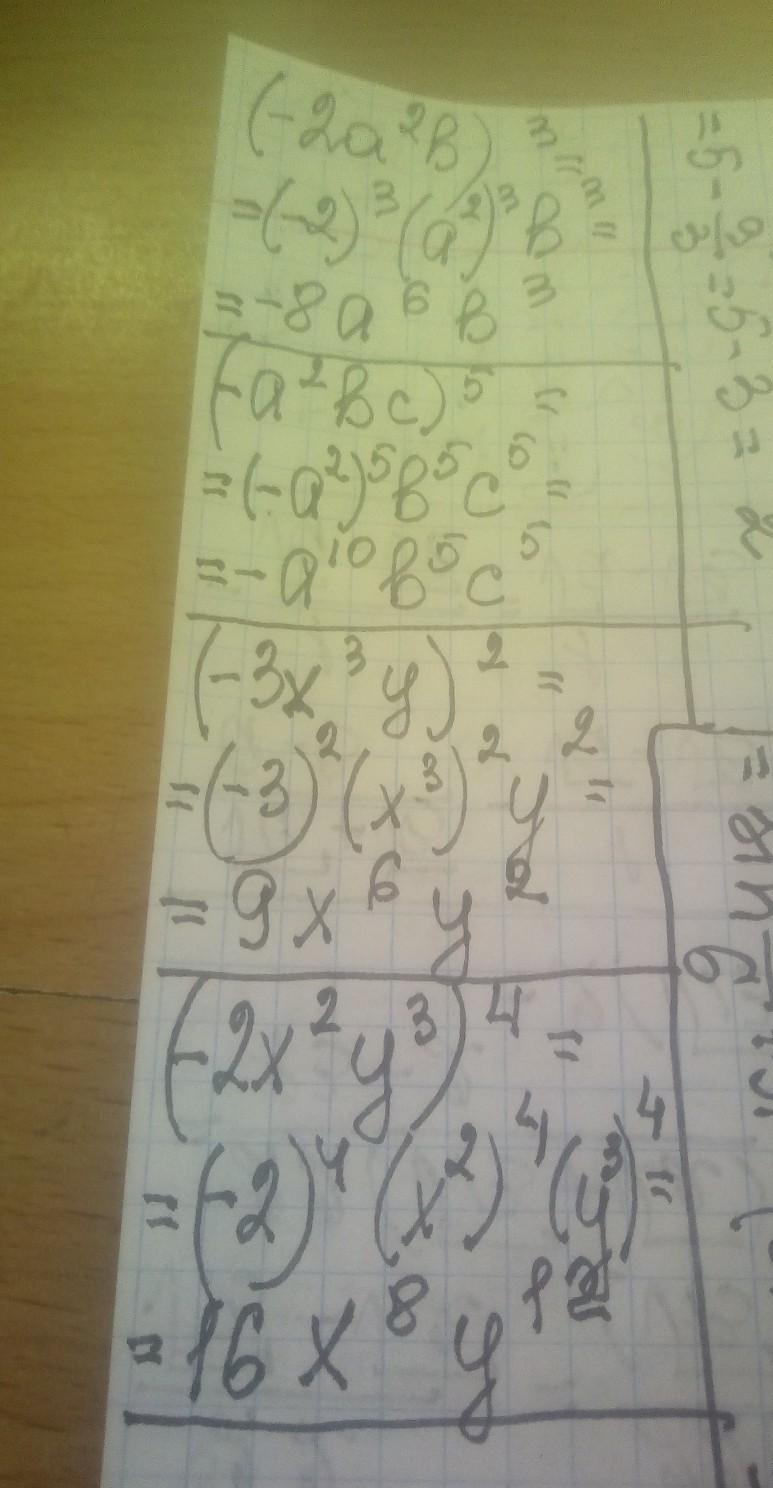 (-2a²b)³=
=(-2)³(a²)³b³=
=-8a⁶b³
(-a²bc)⁵=
=(-a²)⁵b⁵c⁵=
=-a¹⁰b⁵c⁵
(-3x³y)²=
=(-3)²(x³)²y²=
=9x⁶y²
(-2x²y³)⁴=
=(-2)⁴(x²)⁴(y³)⁴=
=16x⁸y¹²
=5-9/3=5-3=2